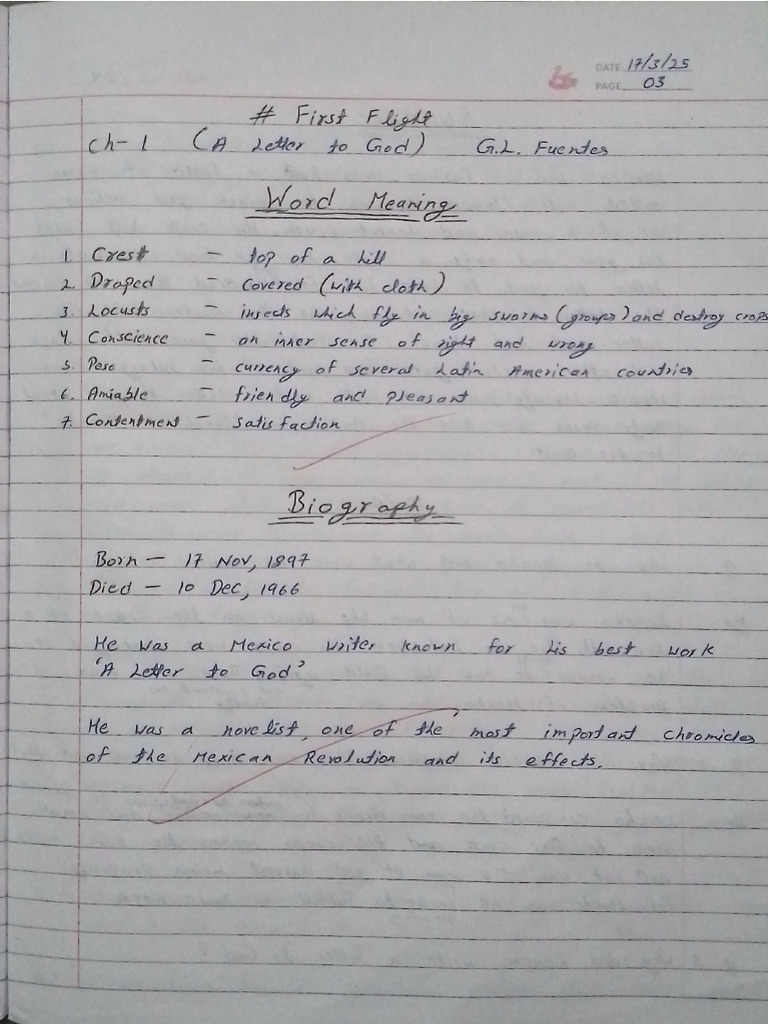 DATE 17/3/25
PAGE 03
# First Flight
Ch-1 (A Letter to God) G.L. Fuentes
Word Meaning
1. Crest - top of a hill
2. Draped - covered (with cloth)
3. Locusts - insects which fly in big swarms (groups) and destroy crops
4. Conscience - an inner sense of right and wrong
5. Peso - currency of several Latin American countries
6. Amiable - friendly and pleasant
7. Contentment - satisfaction
Biography
Born - 17 Nov, 1897
Died - 10 Dec, 1966
He was a Mexico writer known for his best work
'A Letter to God'
He was a novelist, one of the most important chromicles
of the Mexican Revolution and its effects.